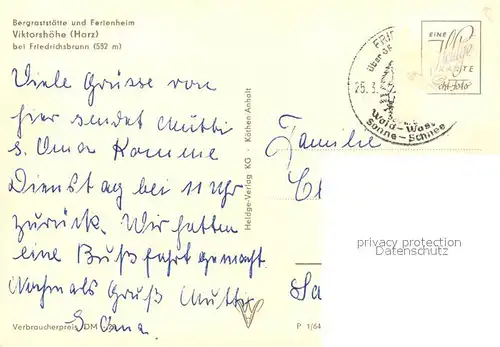 Bergraststätte und Ferienheim
Viktorshöhe (Harz)
bei Friedrichsbrunn (552 m)
Viele Grüsse von
hier sendet Mutti
s. Oma Komme
Dienstag bei 11 Uhr
zurück. Wir hatten
eine Bußfahrt gemacht
Nochmals Gruß Mutti
S Oma
Verbraucherpreis DM
Heldge-Verlag KG - Köthen-Anhalt
P 1/64
25.3.
Wald -
Sonne - Schnee
EINE
Heldge
KARTE
Echt Foto
Familie
privacy protection
Datenschutz